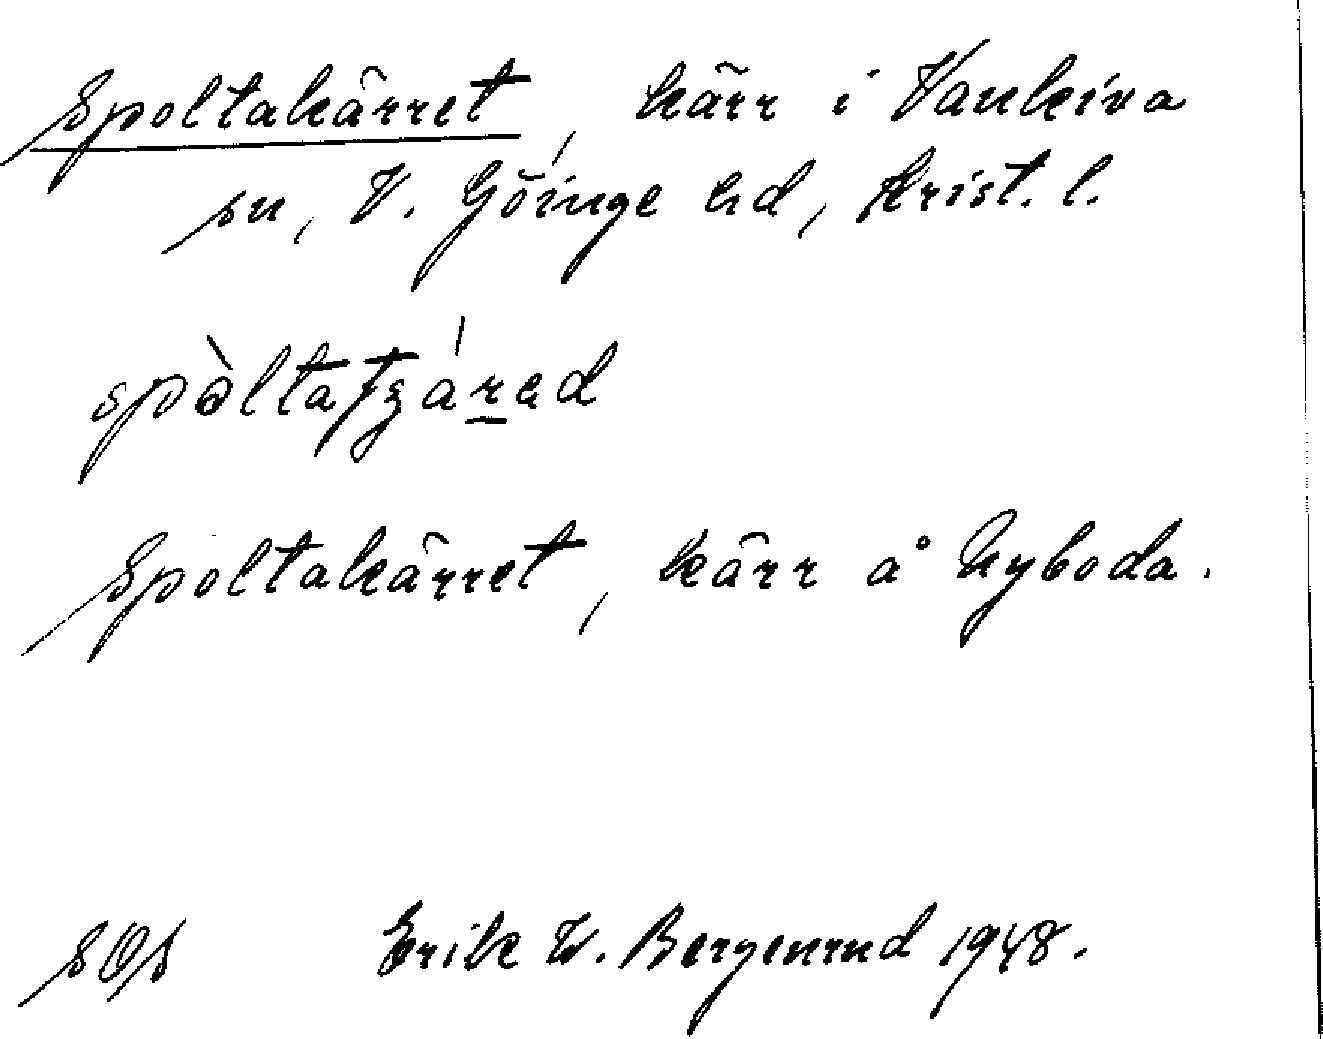 Spoltakärret, kärr i Vankiva
sn, V. Göinge hd, Krist. l.
Spoltakärret, kärr å Nyboda.
Erik W. Bergenrud 1948.